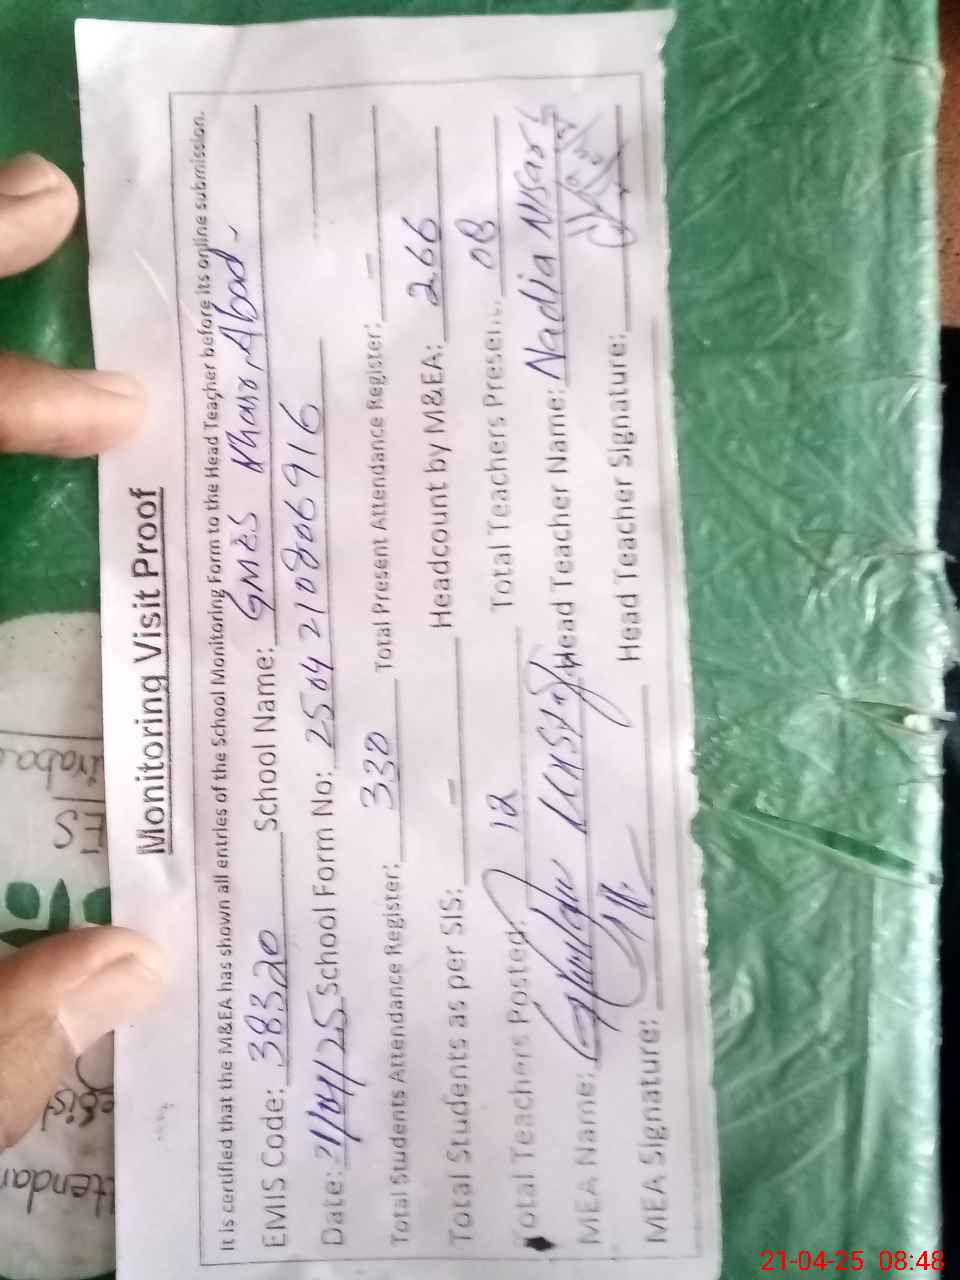 Monitoring Visit Proof
It is certified that the M&EA has shown all entries of the School Monitoring Form to the Head Teacher before its online submission.
EMIS Code: 38320 School Name: GMES Khair Abad
Date: 21/04/25 School Form No: 2504 210806916
Total Students Attendance Register: 330 Total Present Attendance Register: -
Total Students as per SIS: - Headcount by M&EA: 266
Total Teachers Posted: 12 Total Teachers Present: 08
MEA Name: Ghulam Head Teacher Name: Nadia Nisar
MEA Signature: Head Teacher Signature:
21-04-25 08:48